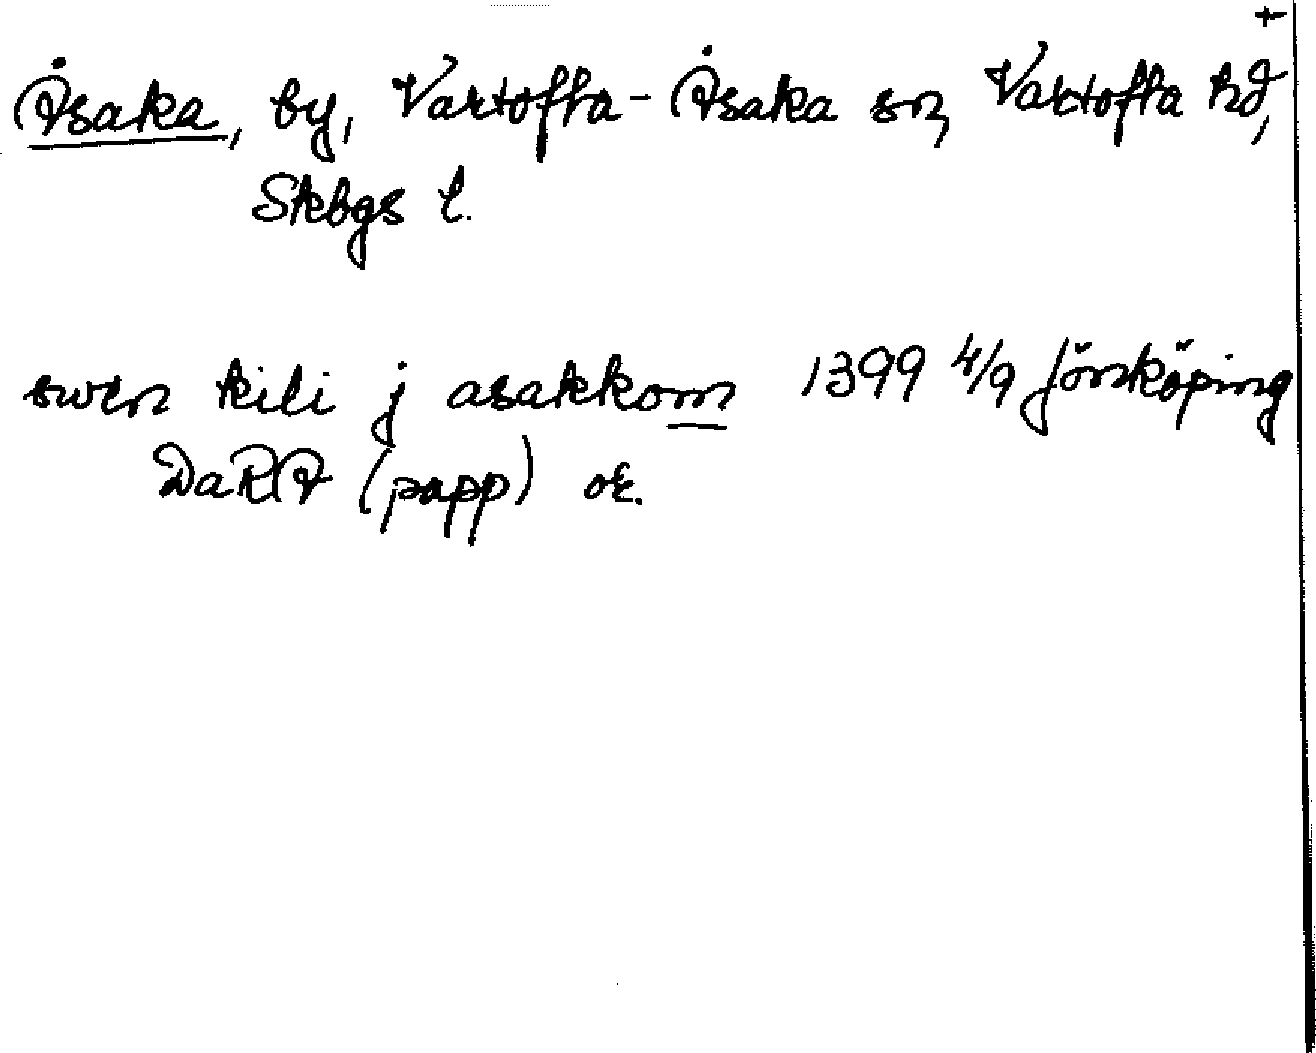 +
Åsaka, by, Vartofta-Åsaka sn, Vartofta hd,
Skbgs l.
swen kili j asakkom 1399 4/9 Jönköping
DaRA (papp) or.